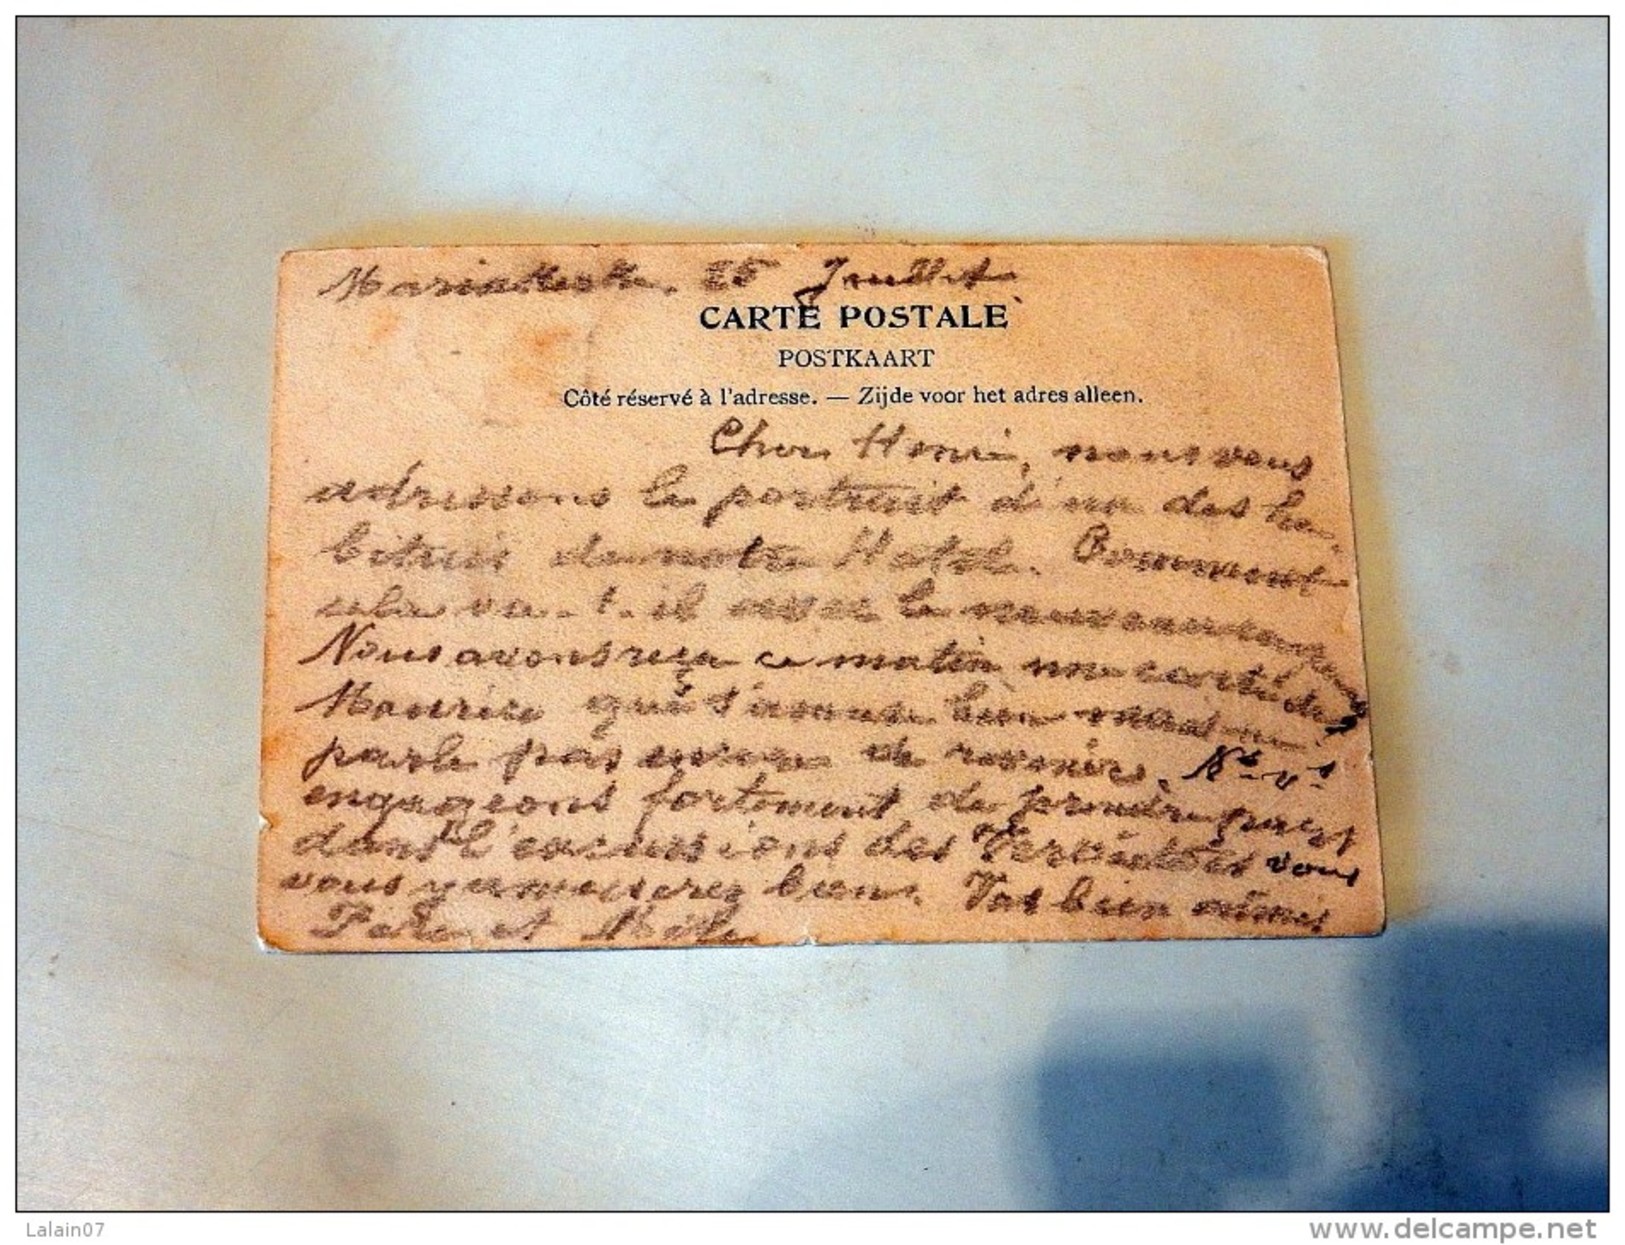 Mariakerke, 25 Juillet
CARTE POSTALE
POSTKAART
Côté réservé à l'adresse. — Zijde voor het adres alleen.
Cher Henri, nous vous
adressons le portrait d'un des ha-
bitués de notre Hotel. Comment
cela va-t-il avec le nouveau
Nous avons reçu ce matin une carte de
Maurice qui s'amuse bien mais ne
parle pas encore de revenir. Ns vs
engageons fortement de prendre part
dans l'excursions des vous
vous y amuserez bien. Vos bien aimés
Père et
Lalain07
www.delcampe.net